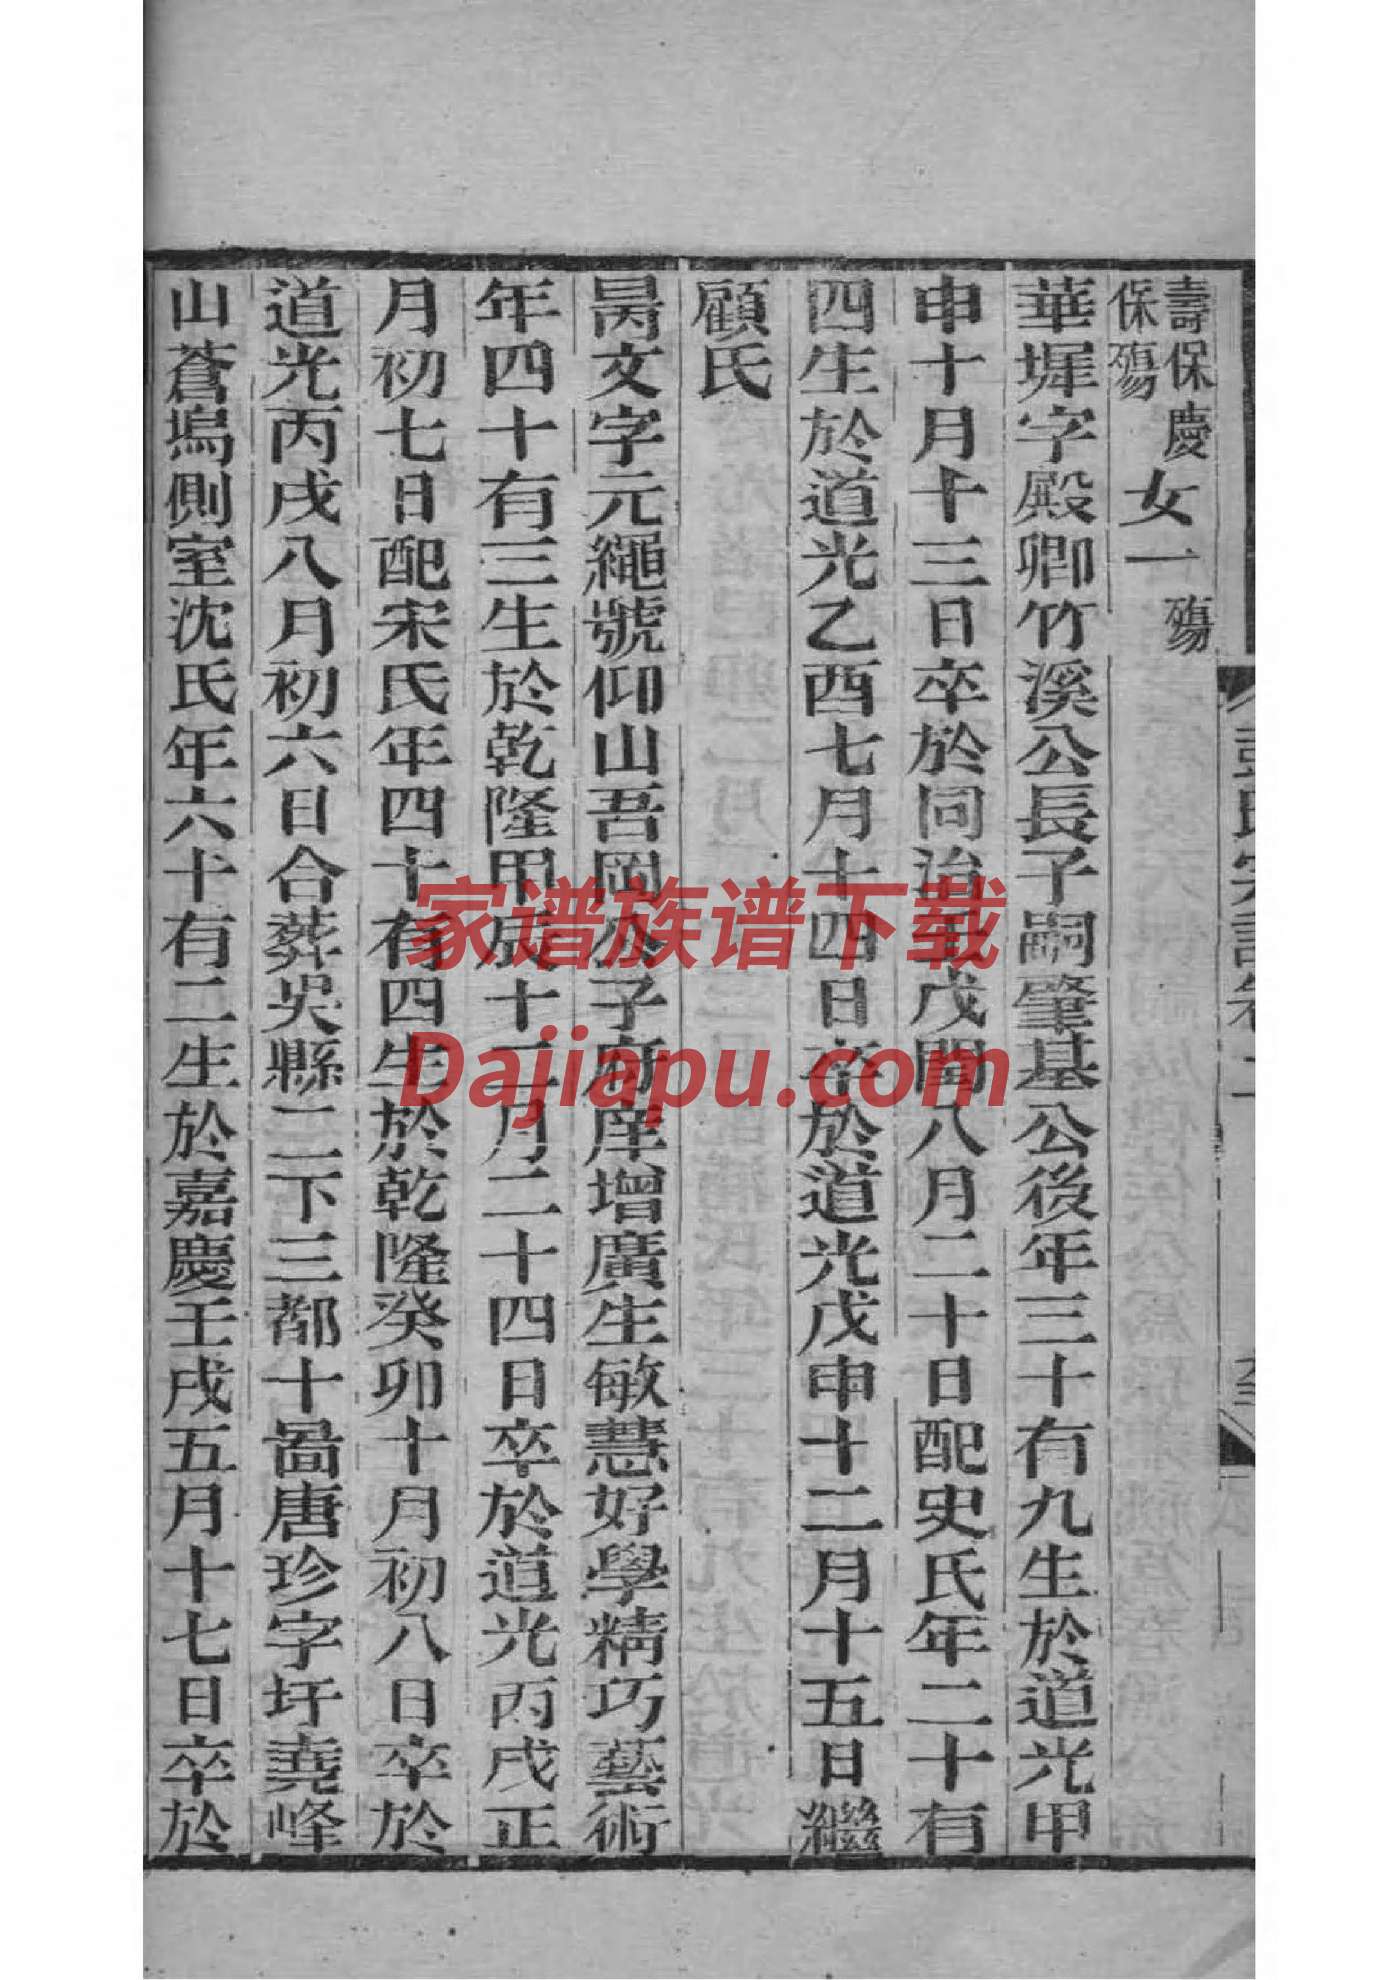 壽保慶
保殤
女一殤
華墀字殿卿竹溪公長子嗣肇基公後年三十有九生於道光甲
申十月十三日卒於同治壬戌閏八月二十日配史氏年二十有
四生於道光乙酉七月十四日卒於道光戊申十二月十五日繼
顧氏
昺文字元繩號仰山吾岡公子府庠增廣生敏慧好學精巧藝術
年四十有三生於乾隆甲辰十二月二十四日卒於道光丙戌正
月初七日配宋氏年四十有四生於乾隆癸卯十月初八日卒於
道光丙戌八月初六日合葬吳縣二下三都十啚唐珍字圩堯峰
山蒼塢側室沈氏年六十有二生於嘉慶壬戌五月十七日卒於
家谱族谱下载
Dajiapu.com